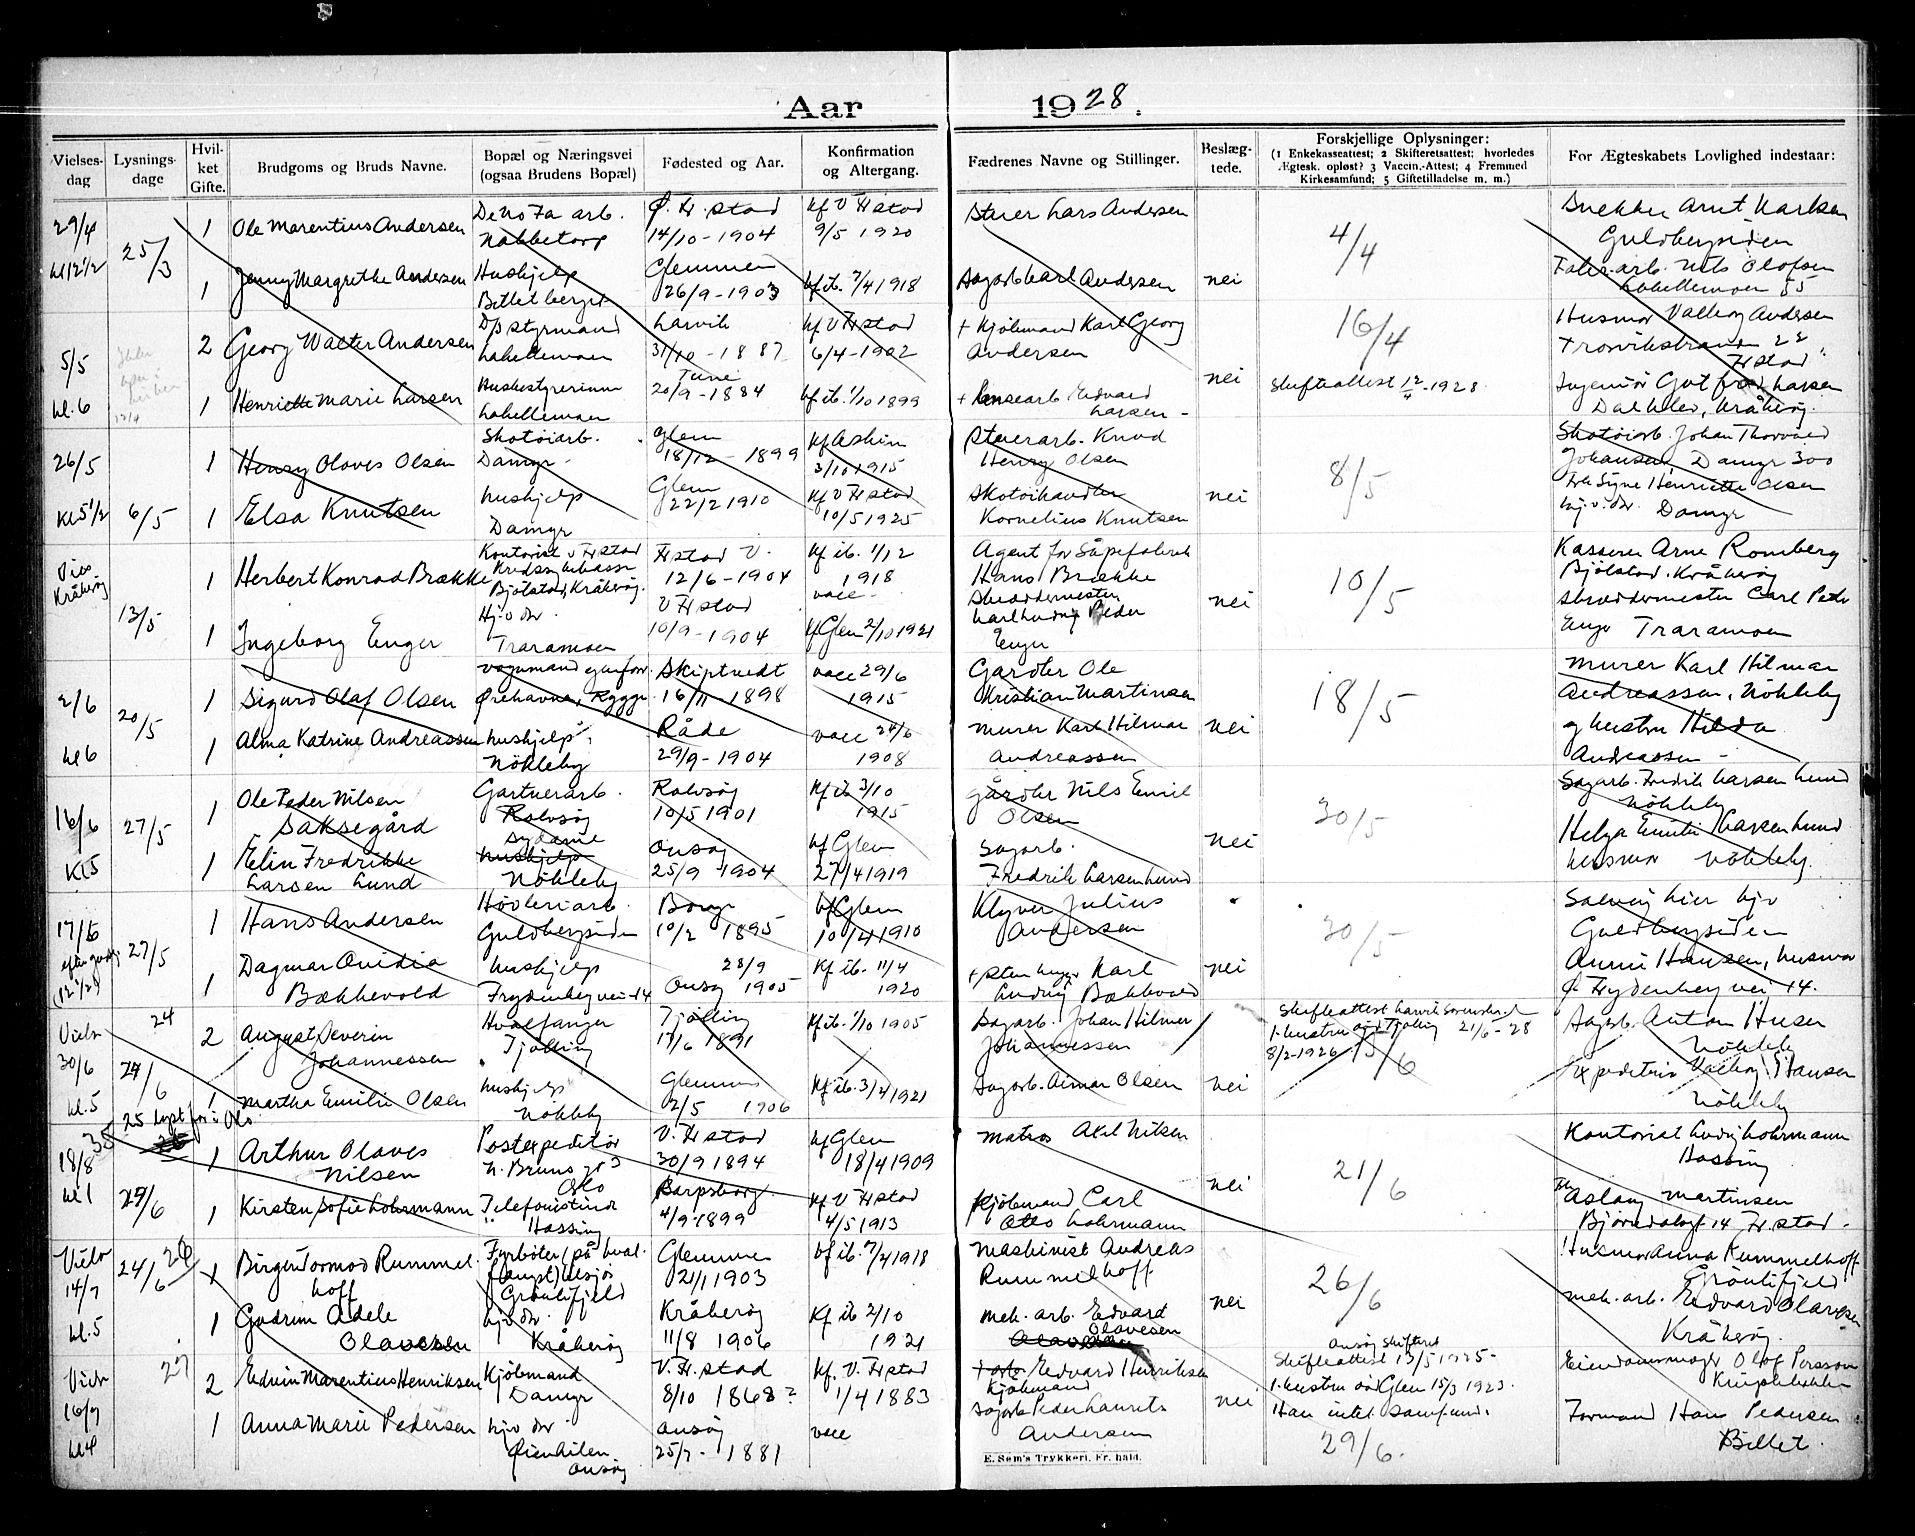 Aar 1928.
Vielses-dag
Lysnings-dage
Hvil-ket Gifte.
Brudgoms og Bruds Navne.
Bopæl og Næringsvei (ogsaa Brudens Bopæl)
Fødested og Aar.
Konfirmation og Altergang.
Fædrenes Navne og Stillinger.
Beslæg-tede.
Forskjellige Oplysninger:
(1 Enkekasseattest; 2 Skifteretsattest; hvorledes Ægtesk. opløst? 3 Vaccn.-Attest; 4 Fremmed Kirkesamfund; 5 Giftetilladelse m. m.)
For Ægteskabets Lovlighed indestaar:
29/4 kl 12 1/2
25/3
1 Ole Marentius Andersen
DeNoFa arb. Nabbetorp
Ø. Fr.stad 14/10-1904
kf V Frstad 9/5 1920
Lars Andersen
4/4
Snekker Arnt Karlsen
Guldbergsiden
1 Jenny Margrethe Andersen
Hushjelp
Glemmen 26/9-1903
kf ib. 7/4 1918
Sagarb Karl Andersen
nei
Nils Olofsen
Labellemoen 55
5/5 kl. 6
2 Georg Walter Andersen
D/s styrmand Labellemoen
Larvik 31/10-1887
kf V Frstad 6/4-1902
+ Kjøbmand Karl Georg Andersen
16/4
Husmor Valborg Andersen
Trosvikstranden 22 Frstad
1 Henriette Marie Larsen
Husbestyrerinne Labellemoen
Tune 20/9-1884
kf ib. 1/10 1899
Edvard Larsen
nei
Skifteattest 12/4-1928.
Ingeniør Gotfred Larsen
Kråkerøy.
26/5 Kl 5 1/2
6/5
1 Henry Olaves Olsen
Skotøiarb. Damyr
Glem 18/12-1899
kf Askim 3/10 1915
Knud Henry Olsen
8/5
Skotøiarb. Johan Thorvald Johansen, Damyr 300
1 Elsa Knutsen
hushjelp Damyr
Glem 22/2 1910
kf V Frstad 10/5 1925
Skotøihandler Kornelius Knutsen
nei
Frk Signe Henriette Olsen
hj. v. dr. Damyr
Vies Kråkerøy
13/5
1 Herbert Konrad Brække
Kontorist v Frstad
Bjølstad, Kråkerøy.
Frstad V. 12/6-1904
kf ib. 1/12 1918
vacc.
Agent for Såpefabrik Hans Brække
10/5
Kasserer Arne Romberg
Bjølstad, Kråkerøy
1 Ingeborg Enger
Hj. v dr Traramoen
V Frstad 10/9-1904
kf Glem 2/10 1921
Skræddermester Carl Ludvig Peder Enger
nei
Skræddermester Carl Peder Enger Traramoen
2/6 kl 6
20/5
1 Sigurd Olaf Olsen
Ørehavna, Rygge
Skiptvedt 16/11 1898
vacc 29/6 1915
Gårdbr Ole Kristian Martinsen
18/5
Murer Karl Hilmar Andreassen, Nøkleby
1 Alma Katrine Andreassen
hushjelp Nøkleby
Råde 29/9-1904
vacc 24/6 1908
Murer Karl Hilmar Andreassen
nei
og hustru Hilda Andreassen
16/6 Kl 5
27/5
1 Ole Peder Nilsen Saksegård
Gartnerarb. Rolvsøy
Rolvsøy 10/5 1901
kf ib 3/10 1915
gårdbr Nils Emil Olsen
30/5
Sagarb. Fredrik Larsen Lund
Nøkleby
1 Elin Fredrikke Larsen Lund
sydame
hushjelp
Nøkleby
Onsøy 25/9-1904
kf Glem 27/4 1919
Sagarb. Fredrik Larsen Lund
nei
Helga Emilie Larsen Lund
husmor Nøkleby.
17/6
efter gudstj. (12 1/2)
27/5
1 Hans Andersen
Høvleriarb. Guldbergsiden
Borge 10/2 1895
kf Glem 10/4 1910
Klyver Julius Andersen
30/5
Solveig Lier hjv
Guldbergsiden
1 Dagmar Ovidia Bækkevold
hushjelp Frydenbergvei 14
28/9 Onsøy 1905
kf ib. 11/4 1920
Karl Ludvig Bækkevold
nei
Anni Hansen, husmor
Frydenberg vei 14.
Vielse 30/6 kl. 5
24/6
2 August Severin Johannessen
Hvalfanger Tjølling
Tjølling 17/6 1891
kf ib. 1/10 1905
Sagarb. Johan Hilmer Johannessen
Skifteattest Larvik 21/6-28
1. hustru død Tjølling 8/2-1926
15/6
Sagarb. Anton Husen
Nøkleby
1 Martha Emilie Olsen
hushjelp Nøkleby
Glemmen 2/5 1906
kf ib. 3/4 1921
Sagarb. Aimar Olsen
nei
Expeditrise Valborg Hansen
Nøkleby
25 lyst for i Oslo
18/8 kl 1
24/6
1 Arthur Olaves Nilsen
Postexpeditør Oslo
V. Frstad 30/9 1894
kf Glem 18/4 1909
Matros Axel Nilsen
21/6
Kontorist Ludvig Lohrmann
Hassing
1 Kirsten Sofie Lohrmann
Telefonistinde Hassing
Sarpsborg 4/9-1899
kf V Frstad 4/5 1913
Kjøbmand Carl Otto Lohrmann
nei
Aslaug Martinsen
Frstad
Vielse 14/7 kl. 5
24/6
1 Birger Tormod Rummelhoff
Fyrbøter (på hvalfangst)
Grønlifjeld
Glemmen 21/1 1903
kf ib. 7/4 1918
Maskinist Andreas Rummelhoff
26/6
Husmor Anna Rummelhoff
Grønlifjeld
1 Gudrun Adele Olavesen
hjv dr. Kråkerøy
Kråkerøy 11/8 1906
kf ib 2/10 1921
mek. arb. Edvard Olavesen
nei
mek. arb. Edvard Olavesen
Kråkerøy.
Vielse 16/7 kl 4
27
2 Edvin Marentius Henriksen
Kjøbmand Damyr
V. Fr.stad 8/10 1868?
kf. V. Frstad 1/4 1883
Edvard Henriksen
Kjøbmand
Onsøy Skifteret
Skifteattest 13/5 1925-
1. hustru død Glem 15/3 1923.
Han intet samfund.
29/6.
Eiendomsmægler Olof Persson
1 Anna Marie Pedersen
hjv dr. Onsøy
Onsøy 25/7-1881
vacc
Sagarb Peder Laurits Andersen
nei
Formand Hans Pedersen
Billet.
E. Sem's Trykkeri, Fr.hald.